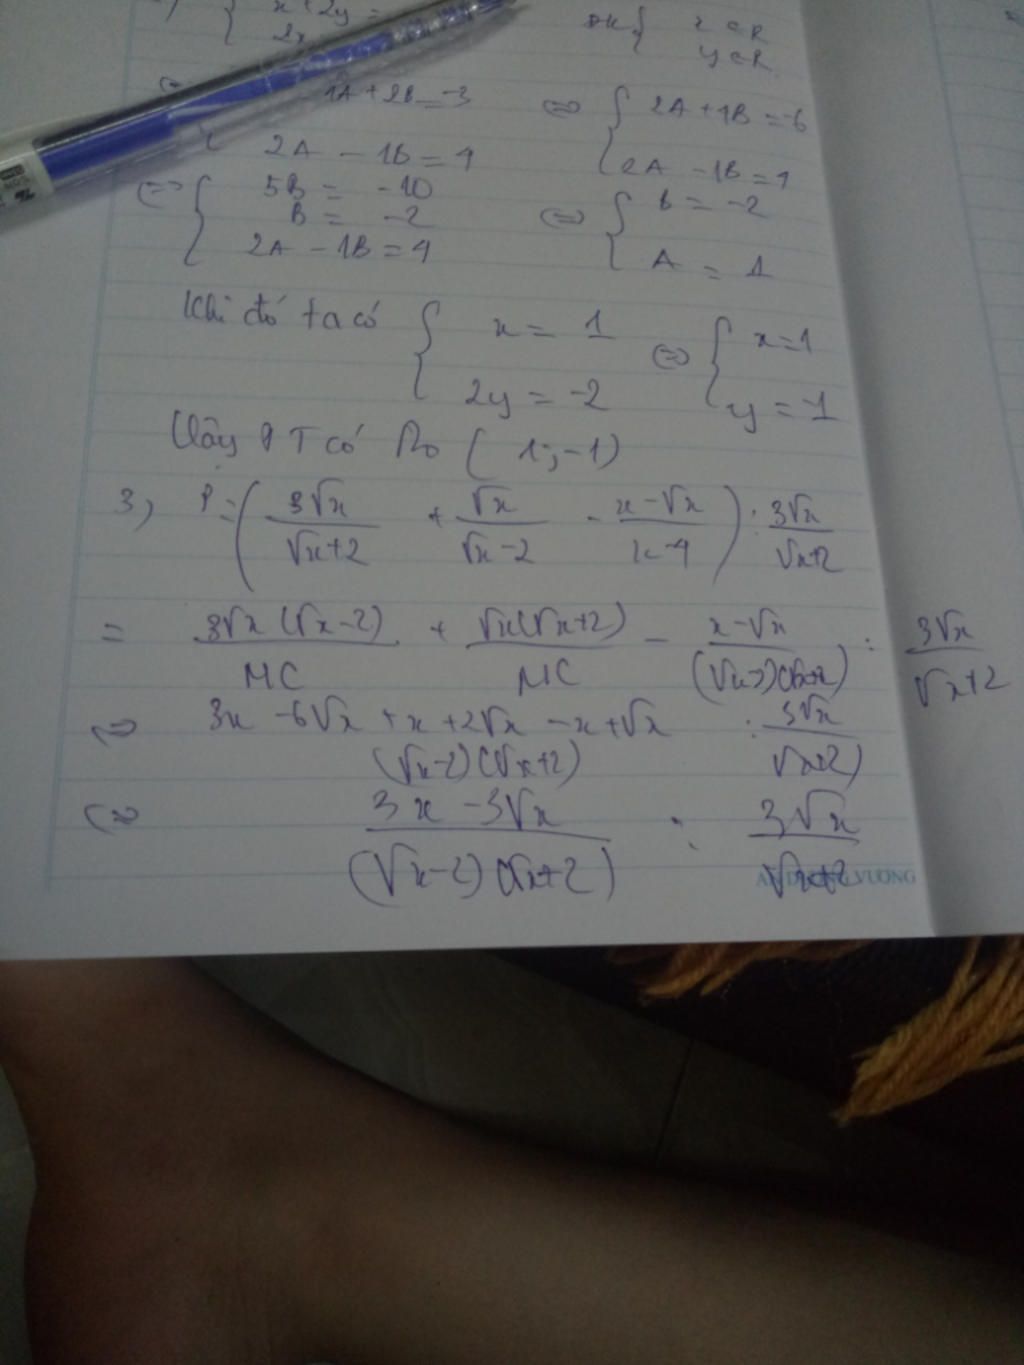 x + 2y =
2x
ĐK { x ∈ R
y ∈ R
1A + 2B = -3 <=> { 2A + 4B = -6
2A - 1B = 4 2A - 1B = 4
<=> { 5B = -10 <=> { B = -2
B = -2
2A - 1B = 4 A = 1
Khi đó ta có { x = 1 <=> { x = 1
2y = -2 y = -1
Vậy PT có No (1; -1)
3, P = ( 3√x / √x+2 + √x / √x-2 - x-√x / x-4 ) : 3√x / √x+2
= 3√x(√x-2) / MC + √x(√x+2) / MC - x-√x / (√x-2)(√x+2) : 3√x / √x+2
<=> 3x - 6√x + x + 2√x - x + √x / (√x-2)(√x+2) : 3√x / √x+2)
<=> 3x - 3√x / (√x-2)(√x+2) : 3√x / √x+2
AN DƯƠNG VƯƠNG